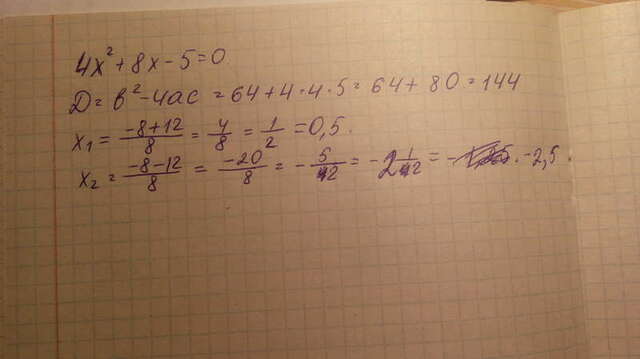 4x² + 8x - 5 = 0
Д = в² - 4ac = 64 + 4 · 4 · 5 = 64 + 80 = 144
x₁ = (-8+12)/8 = 4/8 = 1/2 = 0,5.
x₂ = (-8-12)/8 = -20/8 = -5/2 = -2 1/2 = -2,5.